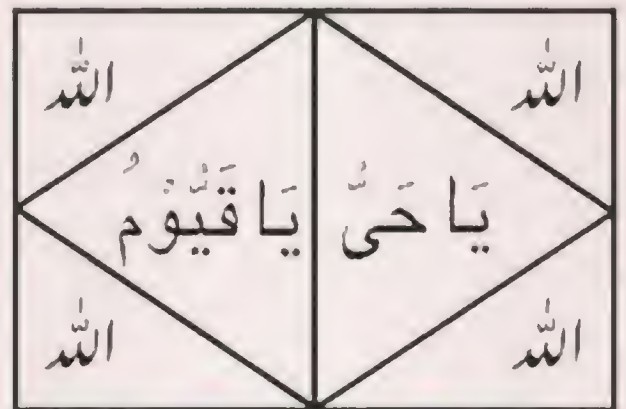 اللّٰه اللّٰه
يَا حَىُّ يَا قَيُّوْمُ
اللّٰه اللّٰه